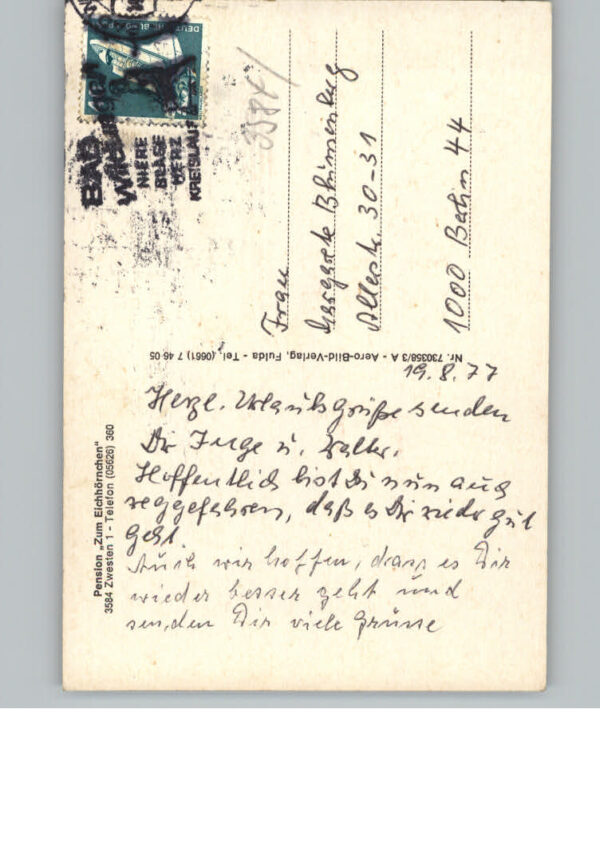 Pension „Zum Eichhörnchen"
3584 Zwesten 1 - Telefon (05626) 360
19.8.77
Herzl. Urlaubsgrüße senden
Dir Inge u. Walter.
Hoffentlich bist Du nun auch
weggefahren, daß es Dir wieder gut
geht.
Auch wir hoffen, dass es Dir
wieder besser geht und
senden Dir viele Grüsse
Nr. 730358/3 A - Aero-Bild-Verlag, Fulda - Tel. (0661) 7 46 05
BAD
Wildungen
NIERE
BLASE
HERZ
KREISLAUF
3584
Frau
Margarete Blumenberg
Allerstr. 30-31
1000 Berlin 44